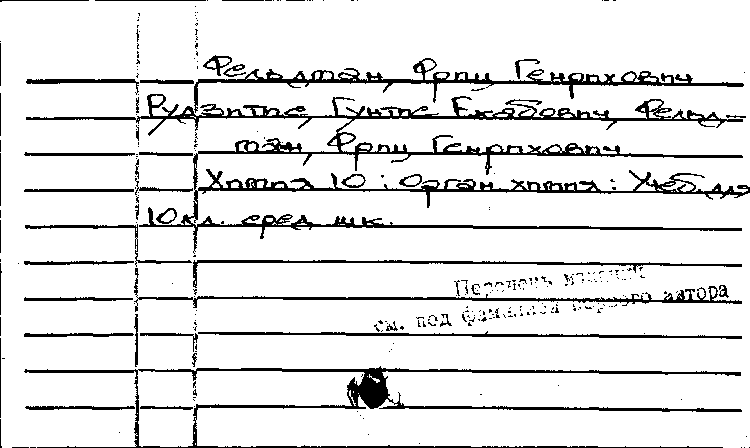 Фельдман, Фриц Генрихович
Рудзитис, Гунтис Екабович, Фельд-
ман, Фриц Генрихович
Химия 10 : Орган. химия : Учеб. для
10 кл. сред. шк.
Перечень изданий
см. под фамилией первого автора